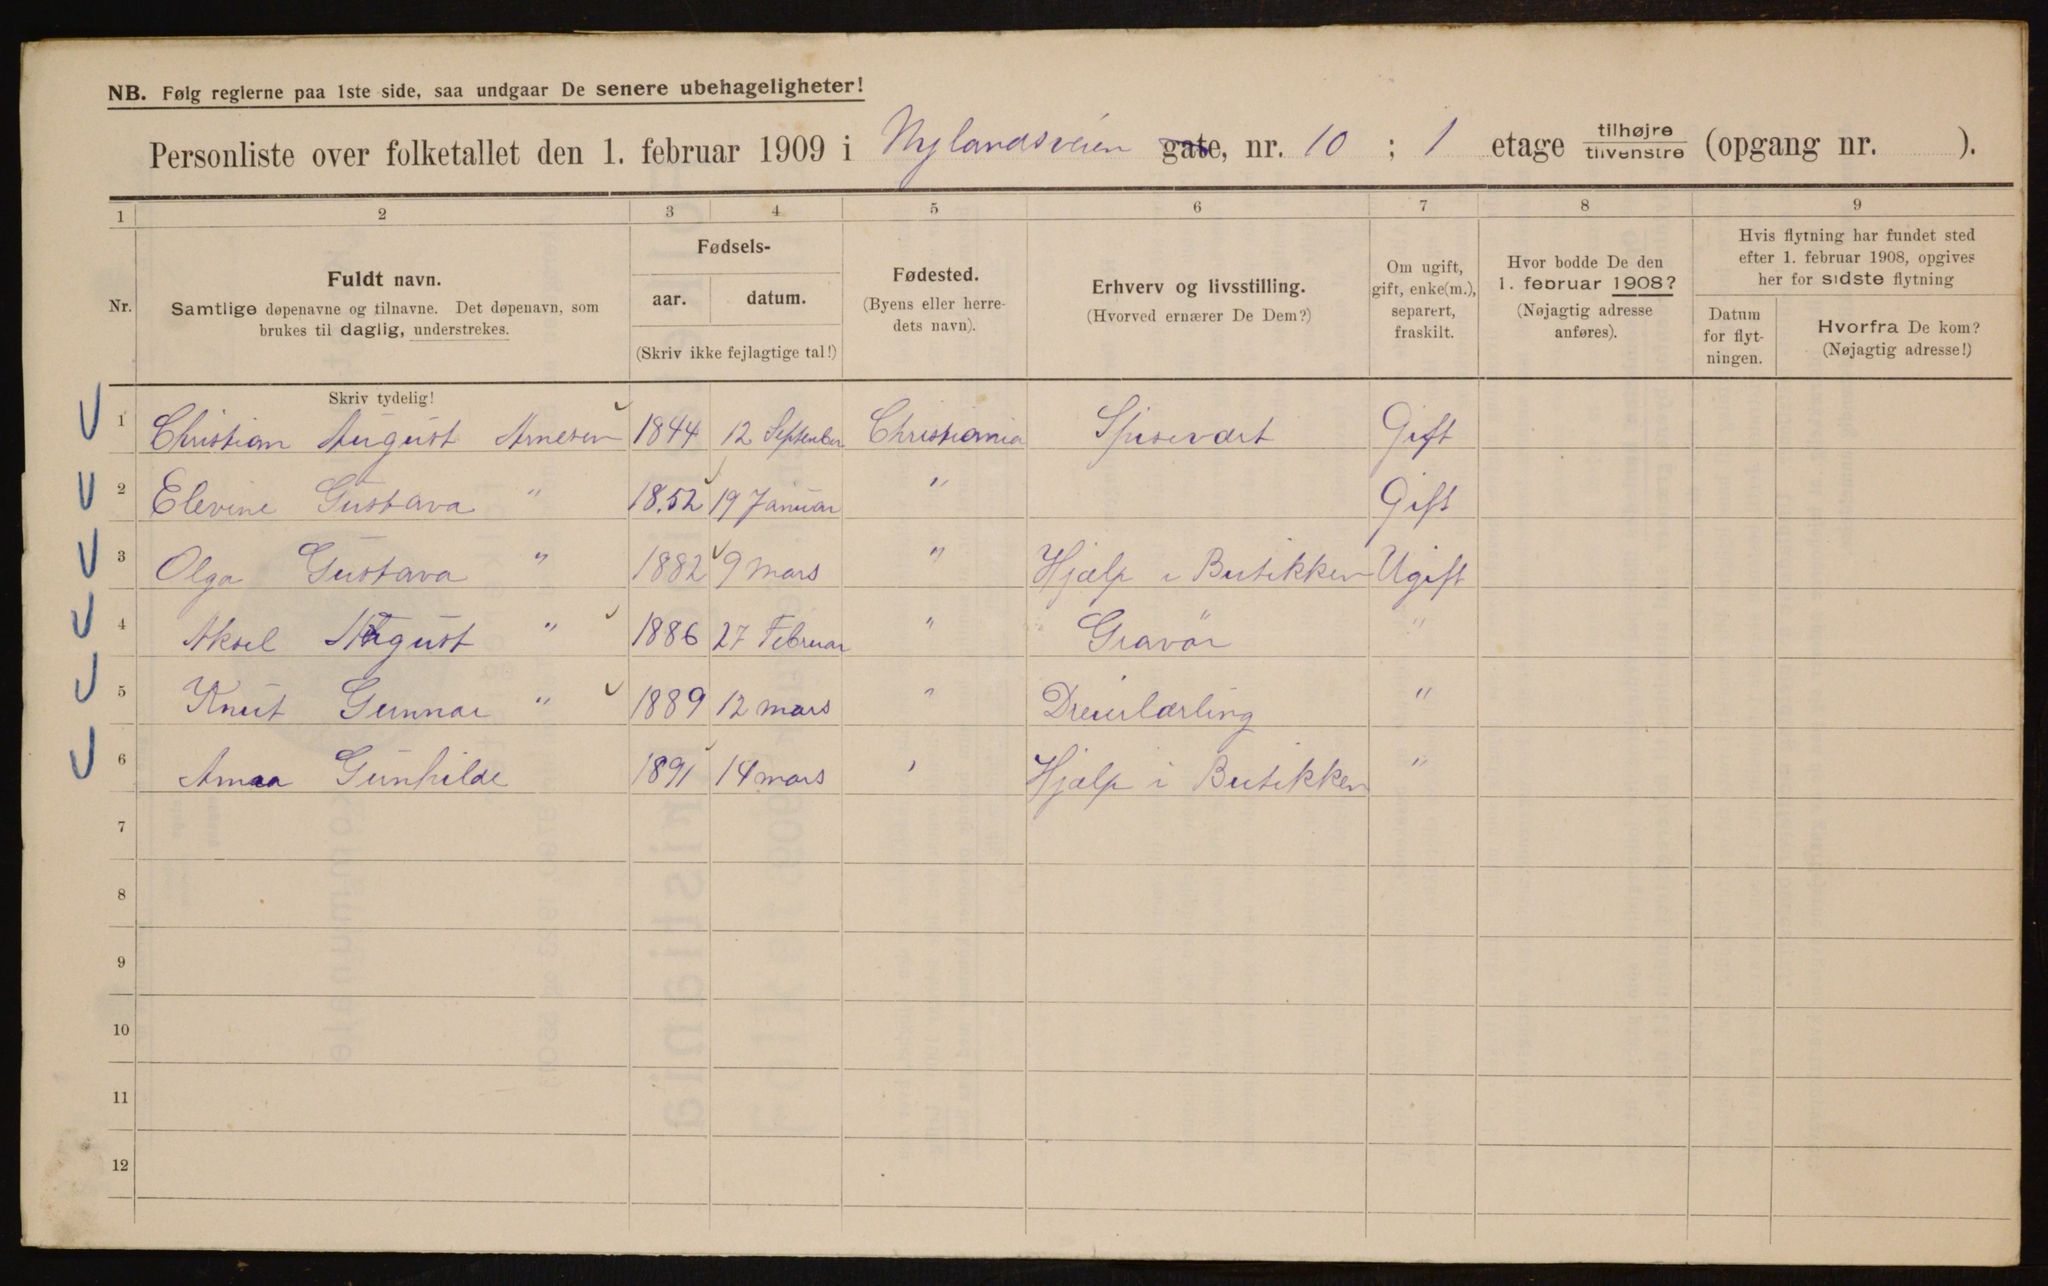 NB. Følg reglerne paa 1ste side, saa undgaar De senere ubehageligheter!
Personliste over folketallet den 1. februar 1909 i Nylandsveien gate, nr. 10 ; 1 etage tilhøjre tilvenstre (opgang nr. ).
1 2 3 4 5 6 7 8 9
Nr.
Fuldt navn.
Samtlige døpenavne og tilnavne. Det døpenavn, som
brukes til daglig, understrekes.
Fødsels-
aar. datum.
(Skriv ikke fejlagtige tal!)
Fødested.
(Byens eller herre-
dets navn).
Erhverv og livsstilling.
(Hvorved ernærer De Dem?)
Om ugift,
gift, enke(m.),
separert,
fraskilt.
Hvor bodde De den
1. februar 1908?
(Nøjagtig adresse
anføres).
Hvis flytning har fundet sted
efter 1. februar 1908, opgives
her for sidste flytning
Datum
for flyt-
ningen.
Hvorfra De kom?
(Nøjagtig adresse!)
Skriv tydelig!
1 Christian August Arnesen 1844 12 September Christiania Spisevært Gift
2 Elevine Gustava " 1852 19 Januar " Gift
3 Olga Gustava " 1882 9 mars " Hjælp i Butikken Ugift
4 Aksel August " 1886 27 Februar " Gravör "
5 Knut Gunnar " 1889 12 mars " Dreierlærling "
6 Anna Gunhilde 1891 14 mars " Hjælp i Butikken "
7
8
9
10
11
12